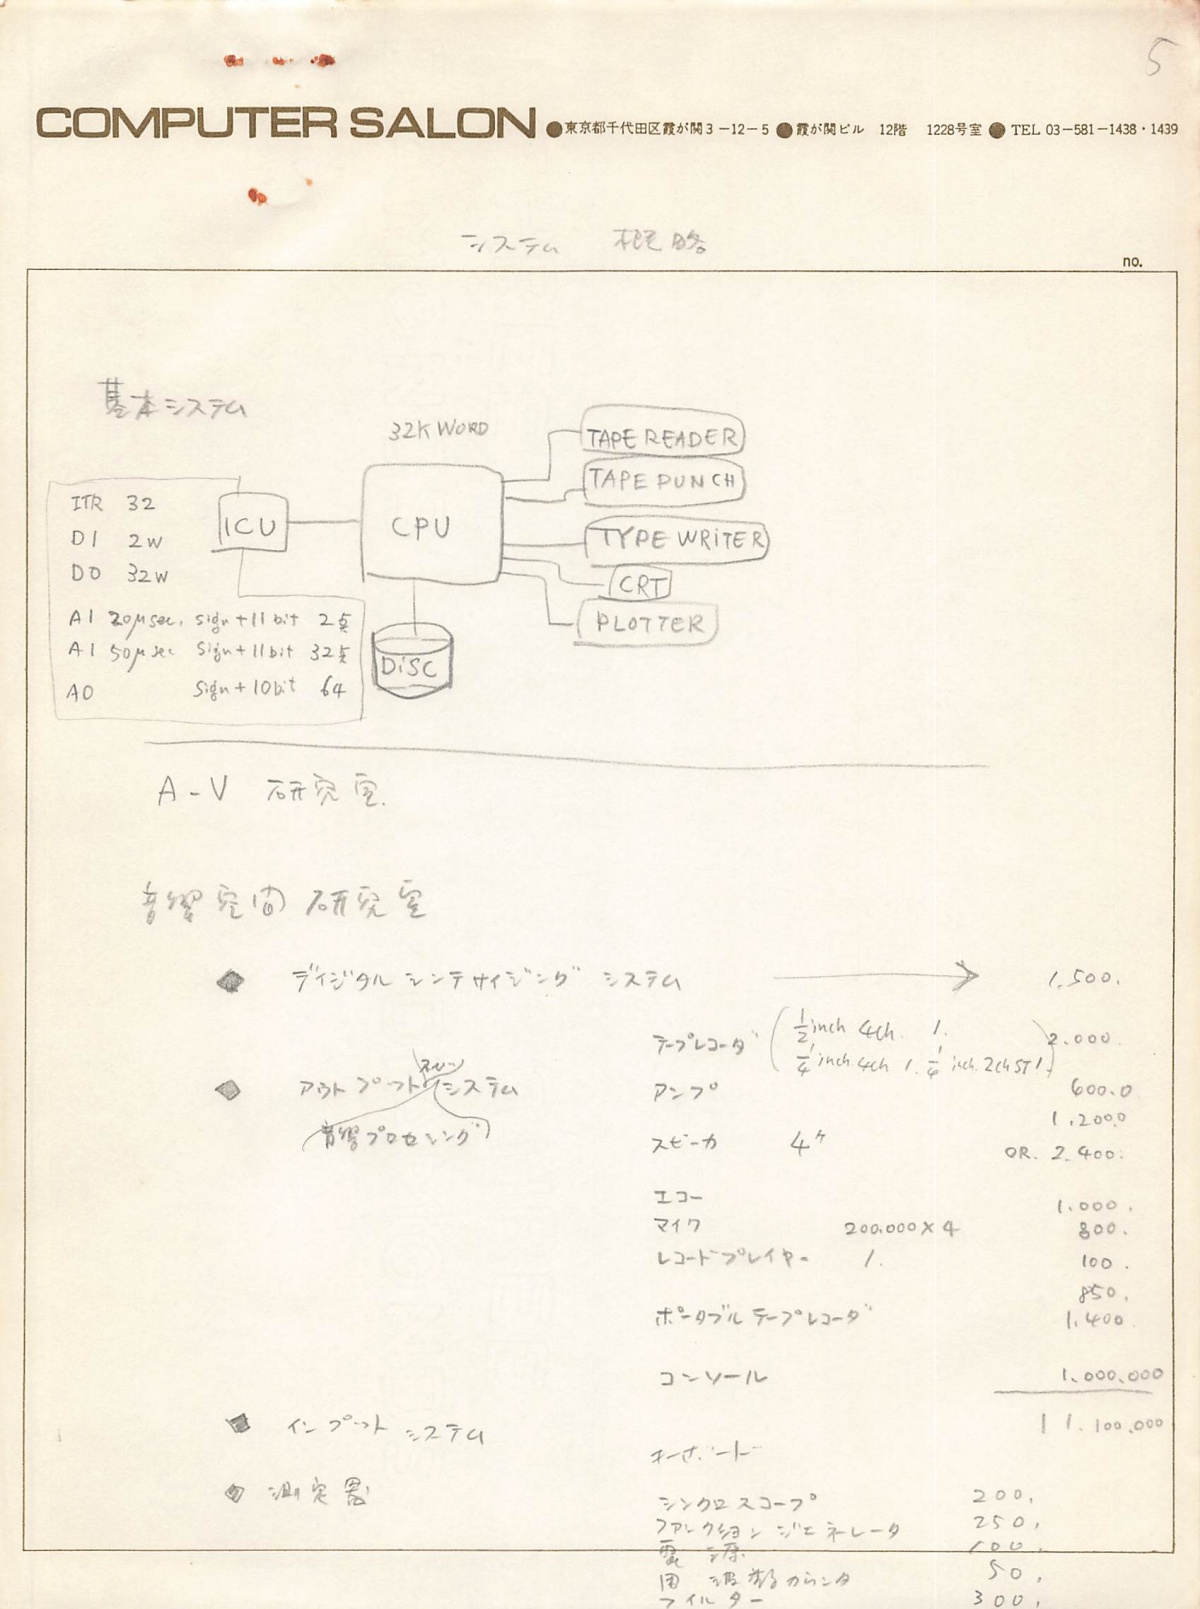 5
COMPUTER SALON ●東京都千代田区霞が関3−12−5 ●霞が関ビル 12階 1228号室 ● TEL 03−581−1438・1439
システム 概略
no.
基本システム
32K WORD
TAPE READER
TAPE PUNCH
TYPE WRITER
CRT
PLOTTER
CPU
ICU
DISC
ITR 32
DI 2W
DO 32W
AI 20μsec, sign+11bit 2点
AI 50μsec sign+11bit 32点
AO sign+10bit 64
A-V 研究室
音響空間 研究室
ディジタル シンテサイジング システム → 1,500.
テープレコーダ (1/2 inch 4ch. 1. 2.000
1/4 inch. 4ch 1. 1/4 inch. 2ch ST 1.)
アウトプット システム アンプ 600.0
1.200.0
音響プロセシング
スピーカ 4ケ OR. 2.400.
エコー 1.000.
マイク 200.000×4 800.
レコードプレイヤー 1. 100.
850.
ポータブル テープレコーダ 1.400
コンソール 1.000.000
11.100.000
インプット システム
キーボード
測定器
シンクロスコープ 200.
ファンクション ジェネレータ 250.
電源 100.
周波数カウンタ 50.
フィルター 300.